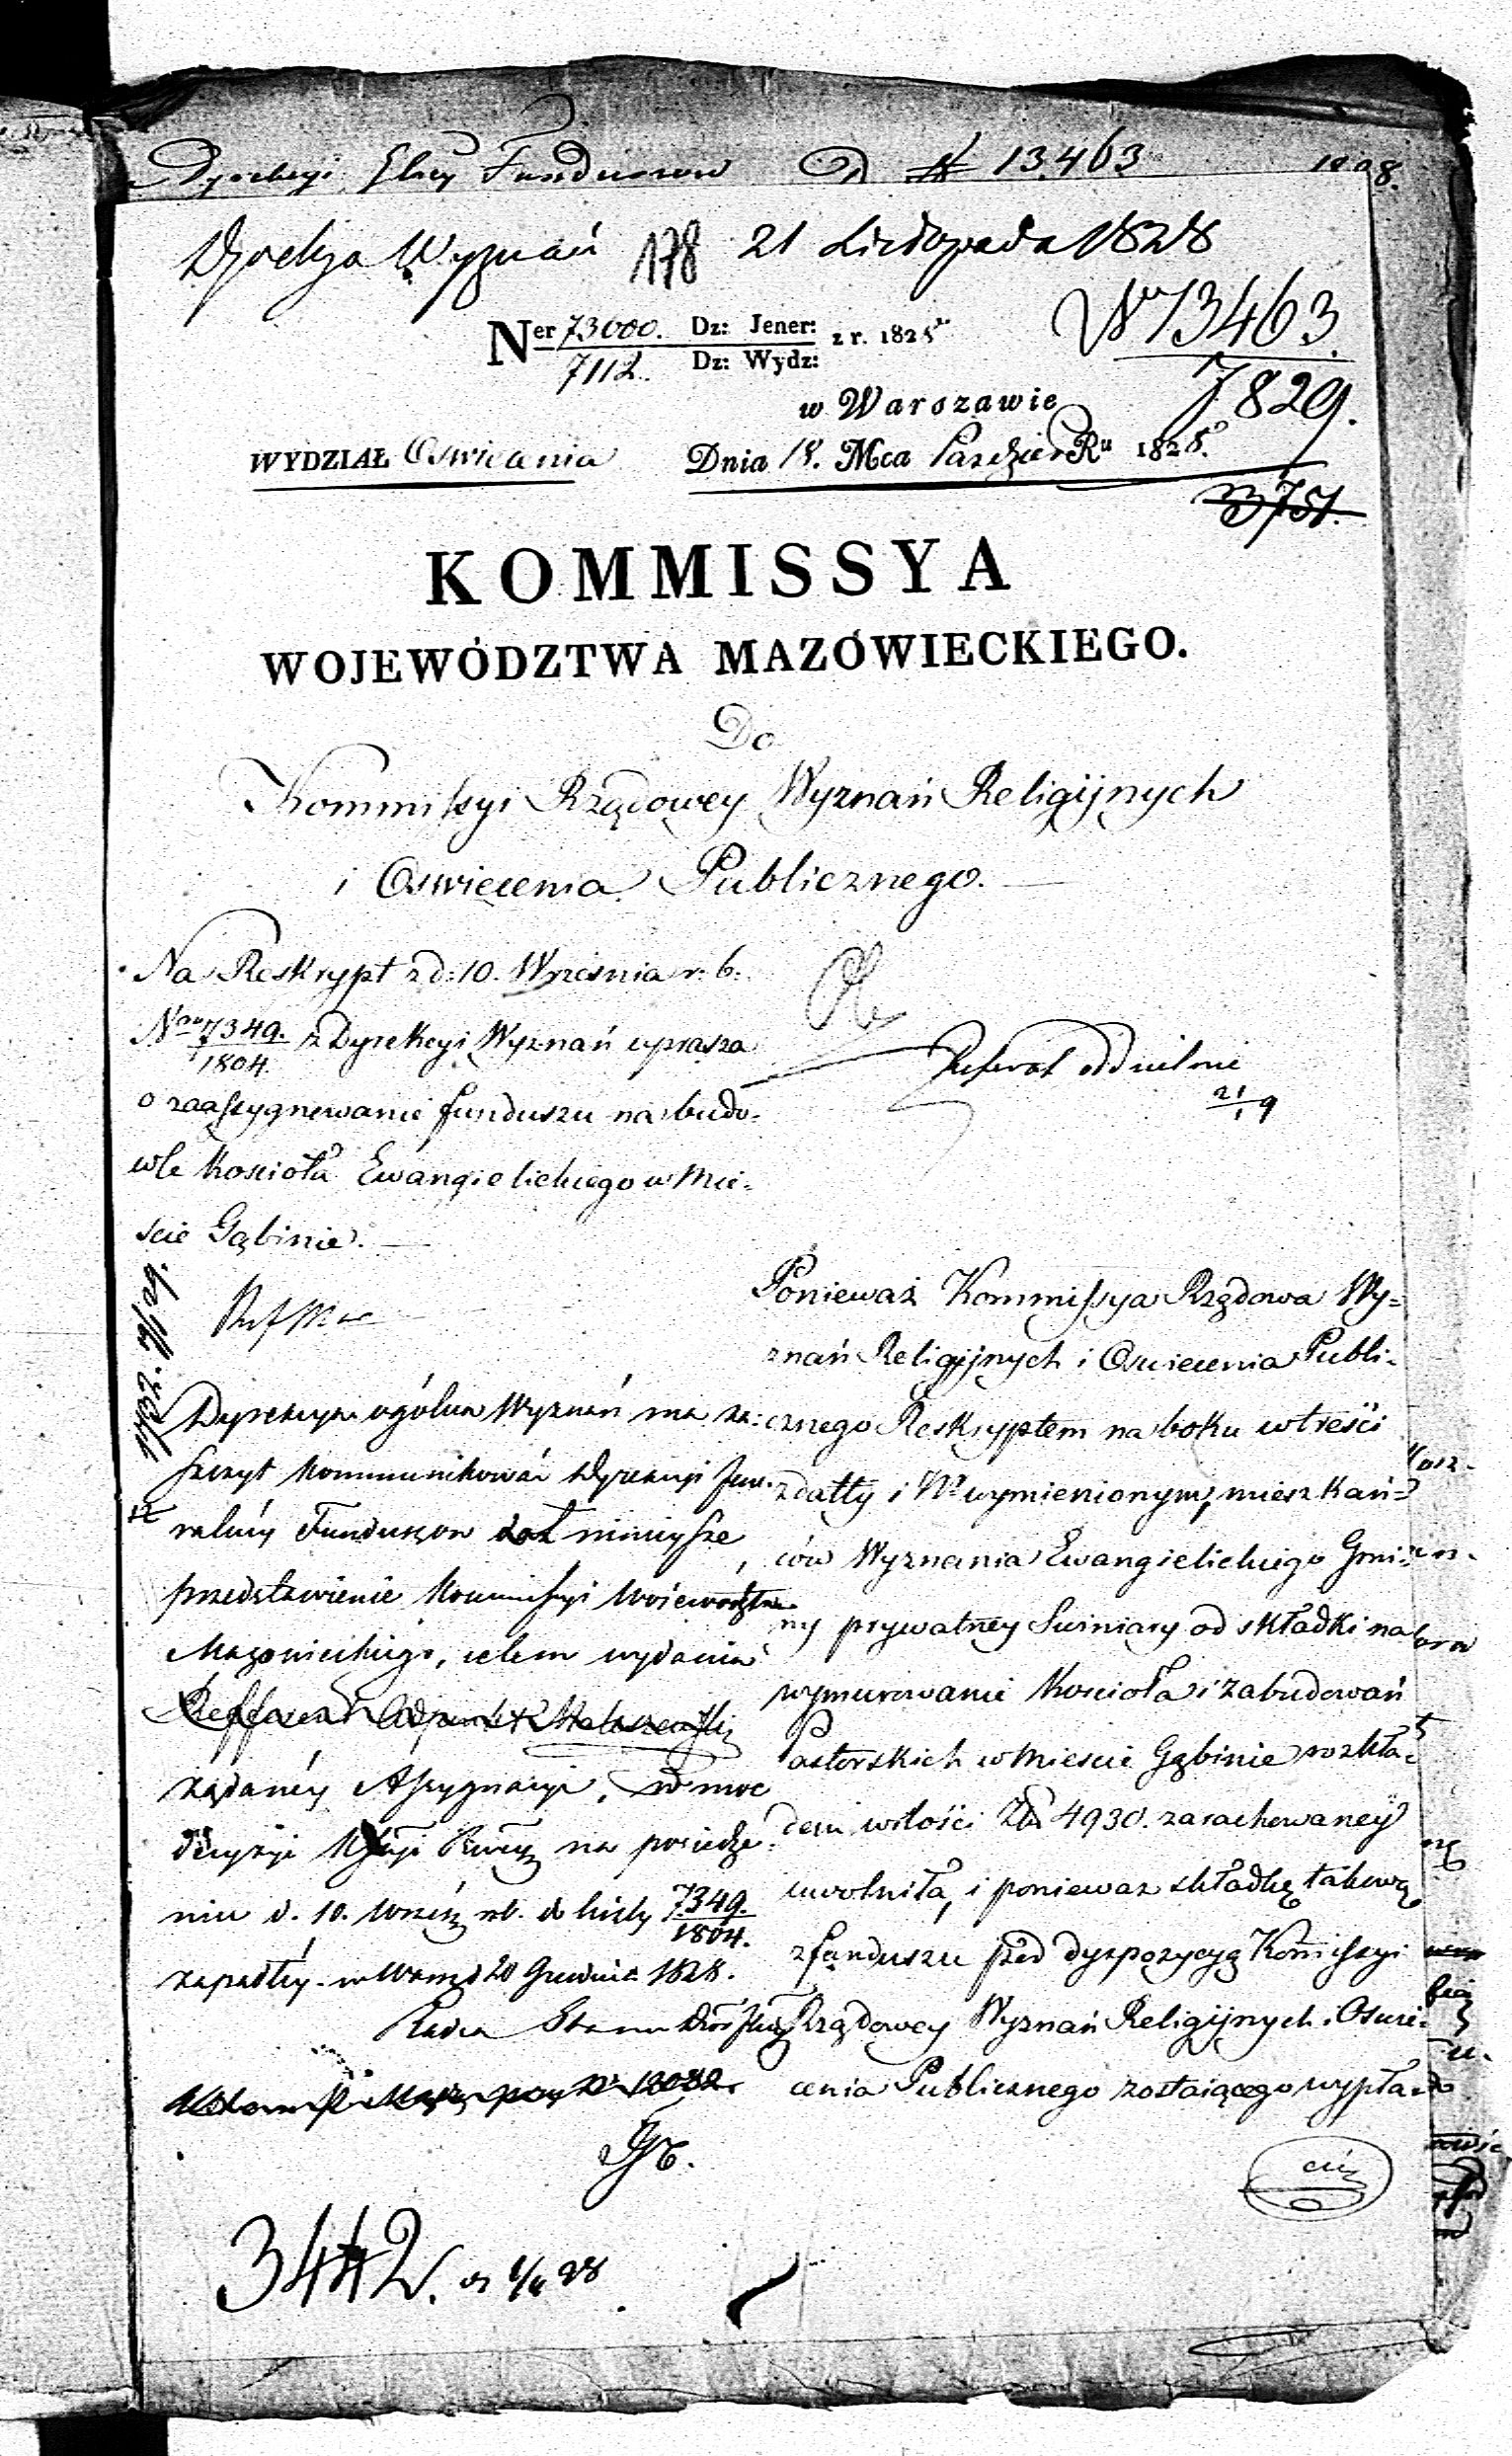 Dyrekcyi Funduszow D # 13.463 1828.
Dyrekcja Wyznań 178 21 Listopada 1828
Ner 73000. Dz: Jener: z r. 1828
7112. Dz: Wydz:
N 13463.
7829.
w Warszawie
WYDZIAŁ Oswiecenia Dnia 18. Mca Paździer Ru 1828.
3751.
KOMMISSYA
WOJEWÓDZTWA MAZOWIECKIEGO.
Do
Kommissyi Rządowey Wyznań Religijnych
i Oswiecenia Publicznego.
Na Reskrypt z d: 10. Września r. b.
Nro 7349. z Dyrekcyi Wyznań uprasza
1804.
o zaassygnowanie funduszu na budo=
wle Kosciołá Ewangielickiego w Mie=
scie Gąbinie.
Referat oddzielnie
21/19
Dyrekcya ogólna Wyznań ma za=
szczyt kommunikować Dyrekcyi Jene=
ralnéy Funduszow niniejsze
przedstawienie Kommissyi Woiewodztwa
Mazowieckiego, celem wydania
żądanéy Assygnacyi, w moc
decyzyi na posiedze=
niu d. 10. Wrześ. rb. do liczby 7349.
1804.
zapadłéy. w Warsz. d 20 Grudnia 1828.
Radca Stanu
3442.
Ponieważ Kommissya Rządowa Wy=
znań Religijnych i Oswiecenia Publi=
cznego Reskryptem na boku w treści
z datty i Nr wymienionym, mieszkań=
ców Wyznania Ewangielickiego Gmi=
ny prywatnéy Swiniary od składki na
wymurowanie Kościoła i zabudowań
Pastorskich w Miescie Gąbinie rozkła=
dem w ilości Złp 4930. zarachowanéy
uwolniła, i poniewaz składkę takową
z funduszu pod dyspozycyą Kommissyi
Rządowéy Wyznań Religijnych i Oswie=
cenia Publicznego zostaiącego wypła=
cić